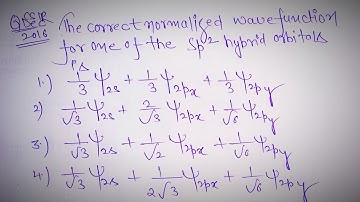 The correct normalised wavefunction
2016
for one of the sp² hybrid orbitals
1.) 1/3 Ψ2s + 1/3 Ψ2px + 1/3 Ψ2py
2) 1/√3 Ψ2s + 2/√3 Ψ2px + 1/√6 Ψ2py
3.) 1/√3 Ψ2s + 1/√2 Ψ2px + 1/√6 Ψ2py
4.) 1/√3 Ψ2s + 1/2√3 Ψ2px + 1/√6 Ψ2py